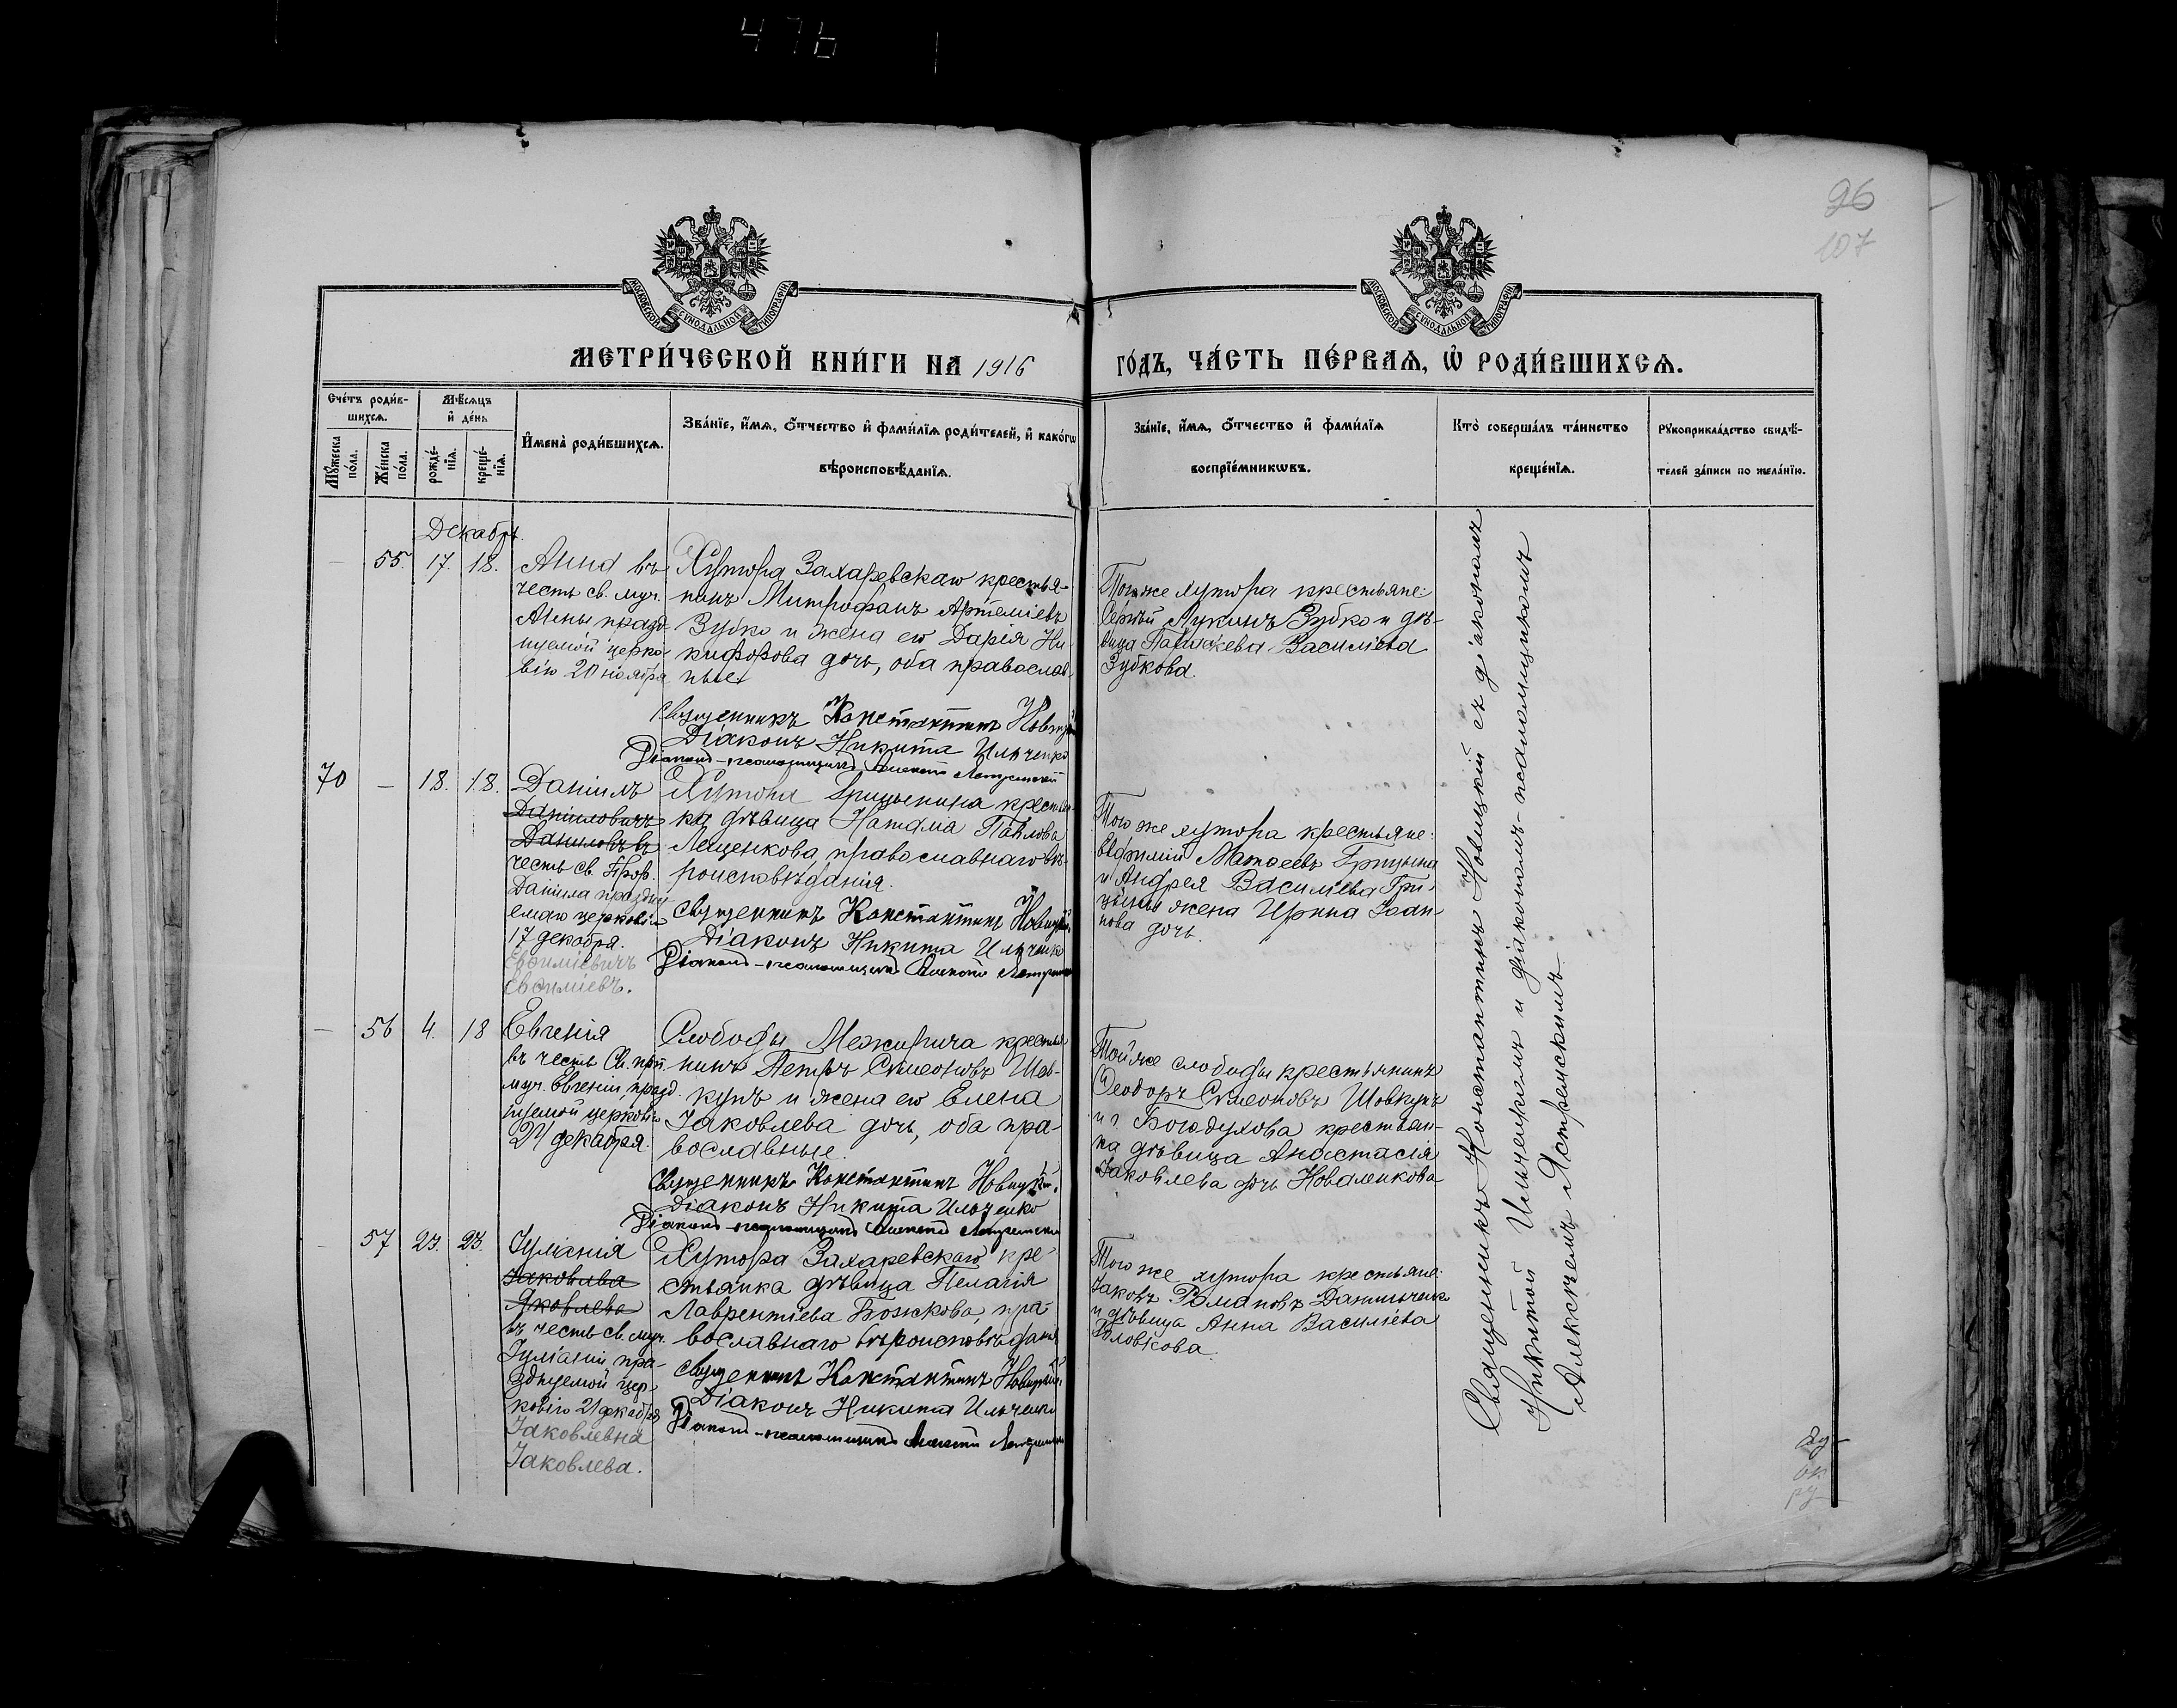 476
96
107
МОСКОВСКОЙ СѴНОДАЛЬНОЙ ТИПОГРАФІИ
МОСКОВСКОЙ СѴНОДАЛЬНОЙ ТИПОГРАФІИ
МЕТРИ́ЧЕСКОЙ КНИ́ГИ НА 1916
ГО́ДЪ, ЧА́СТЬ ПЕ́РВАѦ, Ѡ҆ РОДИ́ВШИХСѦ.
Сче́тъ роди́в-
шихсѧ.
Мꙋ́жеска по́ла.
Же́нска по́ла.
Мѣ́сѧцъ
и҆ де́нь
рожде́-
нїѧ.
креще́-
нїѧ.
И҆мена̀ роди́вшихсѧ.
Зва́нїе, и҆́мѧ, ѻ҆́тчество и҆ фами́лїѧ роди́телей, и҆ како́гѡ
вѣроисповѣ́данїѧ.
Зва́нїе, и҆́мѧ, ѻ҆́тчество и҆ фами́лїѧ
воспрїе́мникѡвъ.
Кто̀ соверша́лъ та́инство
креще́нїѧ.
Рꙋкоприкла́дство свидѣ́-
телей за́писи по жела́нїю.
Декабрь.
— 55. 17. 18.
Анна въ
честь св. муч.
Анны празд-
нуемой церко-
вію 20 ноября
Хутора Захаревскаго крестья-
нинъ Митрофанъ Артеміевъ
Зубко и жена его Дарія Ни-
кифорова дочь, оба православ-
ные.
Священникъ Константинъ Новицкій
Діаконъ Никита Ильченко
Діаконъ-псаломщикъ Алексѣй Ястремскій
Того же хутора крестьяне:
Сергѣй Лукинъ Зубко и дѣ-
вица Параскева Василіева
Зубкова.
70 — 18. 18.
Даніилъ
Даніиловичъ
Даниловъ въ
честь св. Прор.
Даніила праздну-
емаго церковію
17 декабря.
Евѳиміевичъ
Евѳиміевъ.
Хутора Грицынина крестьян-
ка дѣвица Наталія Павлова
Лещенкова, православнаго вѣ-
роисповѣданія.
Священникъ Константинъ Новицкій.
Діаконъ Никита Ильченко
Діаконъ-псаломщикъ Алексѣй Ястремскій
Того же хутора крестьяне:
Евѳимій Матѳеевъ Грицына
и Андрея Василіева Гри-
цыны жена Ирина Іоан-
нова дочь.
— 56 4. 18
Евгенія
въ честь Св. прп.
муч. Евгеніи, празд-
нуемой церковію
24 декабря.
Слободы Межирича крестья-
нинъ Петръ Сѵмеоновъ Шов-
кунъ и жена его Елена
Іаковлева дочь, оба пра-
вославные.
Священникъ Константинъ Новицкій.
Діаконъ Никита Ильченко
Діаконъ-псаломщикъ Алексѣй Ястремскій
Той же слободы крестьянинъ
Ѳеодоръ Сѵмеоновъ Шовкунъ
и г. Богодухова крестьян-
ка дѣвица Анастасія
Іаковлева дочь Коваленкова
— 57 23. 23.
Іуліанія
Іаковлева
Яковлева
въ честь св. муч.
Іуліаніи пра-
зднуемой цер-
ковію 21 декабря
Іаковлевна
Іаковлева.
Хутора Захаревскаго кре-
стьянка дѣвица Пелагія
Лаврентіева Божкова, пра-
вославнаго вѣроисповѣданія
Священникъ Константинъ Новицкій.
Діаконъ Никита Ильченко
Діаконъ-псаломщикъ Алексѣй Ястремскій
Того же хутора крестьяне:
Іаковъ Романовъ Данильченко
и дѣвица Анна Василіева
Священникъ Константинъ Новицкій съ діакономъ
Никитой Ильченкомъ и діакономъ-псаломщикомъ
Алексѣемъ Ястремскимъ.